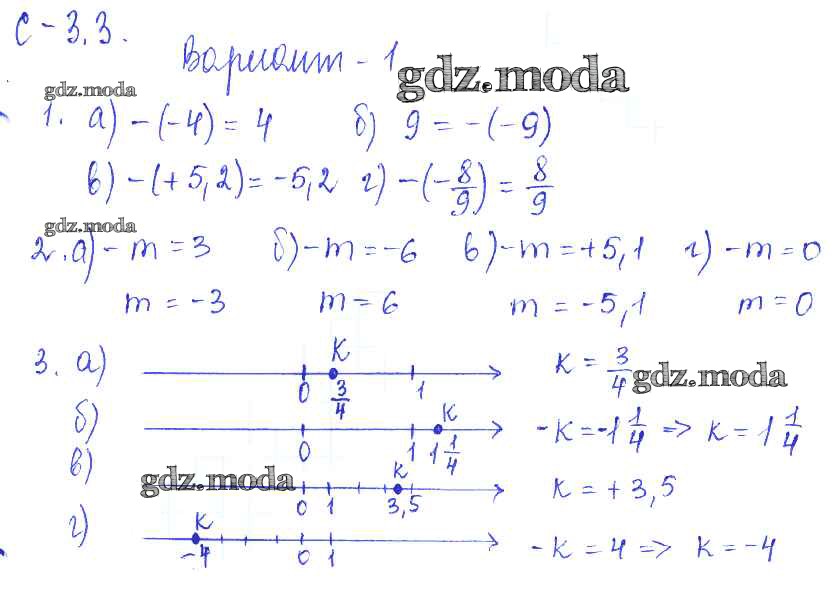 С - 3.3.
Вариант - 1
gdz.moda
gdz.moda
1. а) -(-4) = 4 б) 9 = -(-9)
в) -(+5,2) = -5,2 г) -(-8/9) = 8/9
gdz.moda
2. а) -m = 3 б) -m = -6 в) -m = +5,1 г) -m = 0
m = -3 m = 6 m = -5,1 m = 0
3. а) K 0 3/4 1 K = 3/4
gdz.moda
б) K 0 1 1 1/4 -K = -1 1/4 => K = 1 1/4
в) K 0 1 3,5 K = +3,5
gdz.moda
г) K -4 0 1 -K = 4 => K = -4